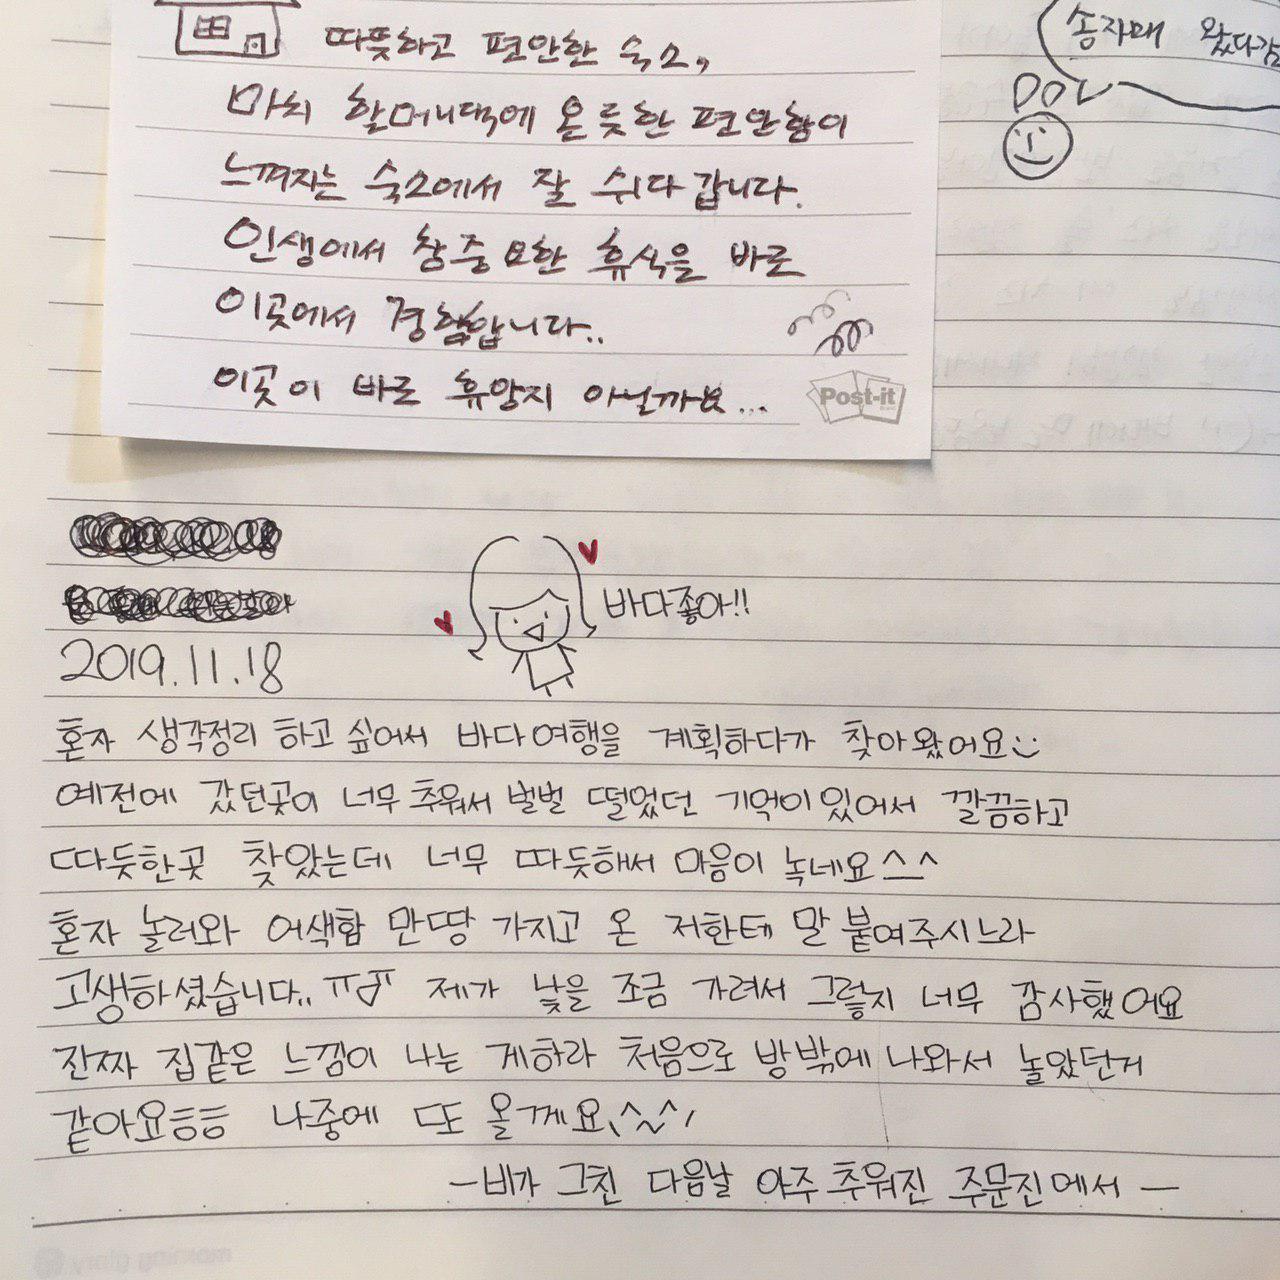 따뜻하고 편안한 숙소,
마치 할머니댁에 온듯한 편안함이
느껴지는 숙소에서 잘 쉬다 갑니다.
인생에서 참 중요한 휴식을 바로
이곳에서 경험합니다..
이곳이 바로 휴양지 아닐까요...
Post-it
송자매 왔다감
바다좋아!!
2019.11.18
혼자 생각정리 하고 싶어서 바다여행을 계획하다가 찾아왔어요
예전에 갔던곳이 너무 추워서 벌벌 떨었던 기억이있어서 깔끔하고
따듯한곳 찾았는데 너무 따듯해서 마음이 녹네요^^
혼자 놀러와 어색함 만땅 가지고 온 저한테 말 붙여주시느라
고생하셨습니다.. ㅠㅠ 제가 낯을 조금 가려서 그렇지 너무 감사했어요
진짜 집같은 느낌이 나는 게하라 처음으로 방밖에 나와서 놀았던거
같아요ㅎㅎㅎ 나중에 또 올께요\^~^/
-비가 그친 다음날 아주 추워진 주문진에서-